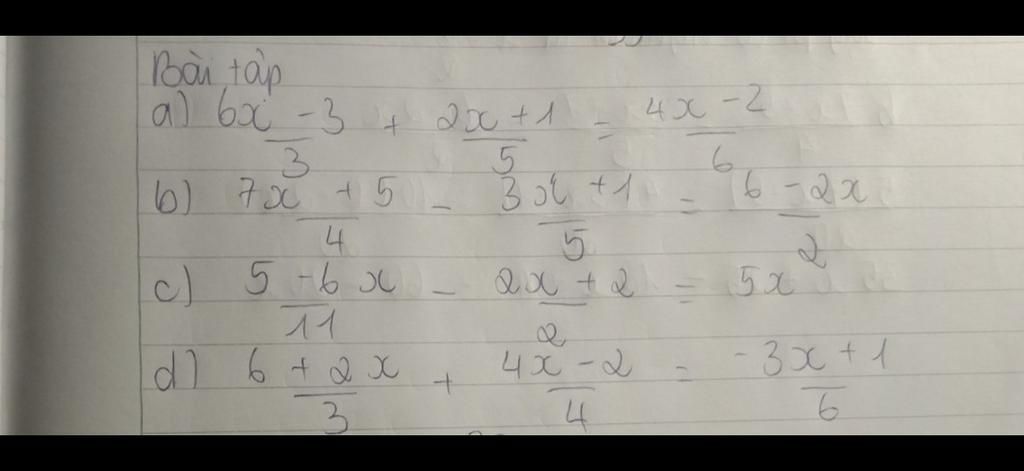 Bài tập
a) 6x - 3 / 3 + 2x + 1 / 5 = 4x - 2 / 6
b) 7x + 5 / 4 - 3x + 1 / 5 = 6 - 2x / 2
c) 5 - 6x / 11 - 2x + 2 / 2 = 5x
d) 6 + 2x / 3 + 4x - 2 / 4 = -3x + 1 / 6